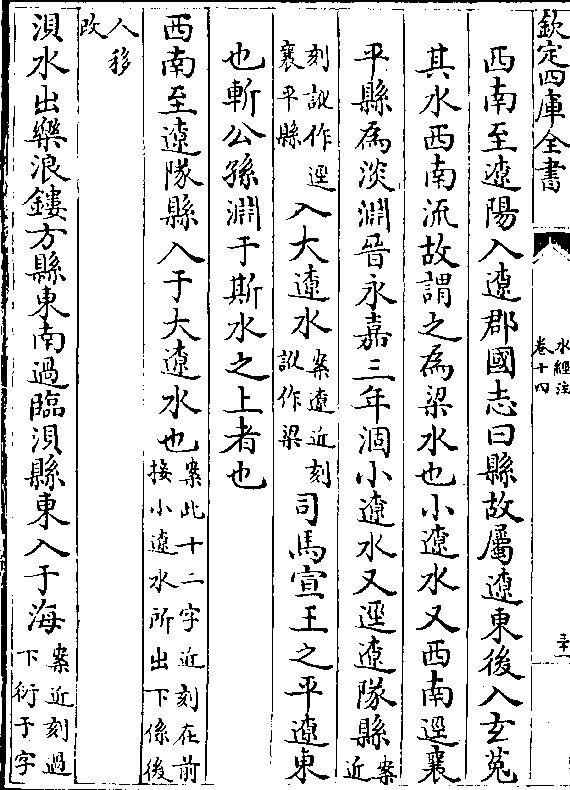 欽定四庫全書
水經注
卷十四
西南至遼陽入遼郡國志曰縣故屬遼東後入玄菟
其水西南流故謂之為梁水也小遼水又西南逕襄
平縣為淡淵晉永嘉三年涸小遼水又逕遼隊縣案近
刻訛作逕襄平縣入大遼水案遼近刻訛作梁司馬宣王之平遼東
也斬公孫淵于斯水之上者也
西南至遼隊縣入于大遼水也案此十二字近刻在前接小遼水所出下係後
人移改
浿水出樂浪鏤方縣東南過臨浿縣東入于海案近刻過下衍于字